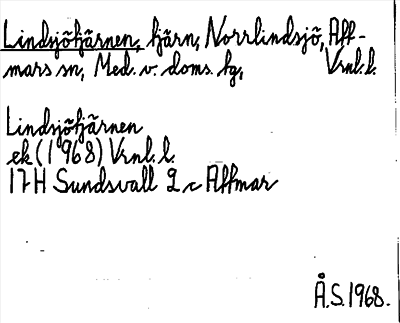 Lindsjötjärnen, tjärn, Norrlindsjö, Att-
mars sn, Med. v. doms. tg, Vrnl. l.
Lindsjötjärnen
ek (1968) Vrnl. l.
17H Sundsvall 2 c Attmar
Å.S. 1968.